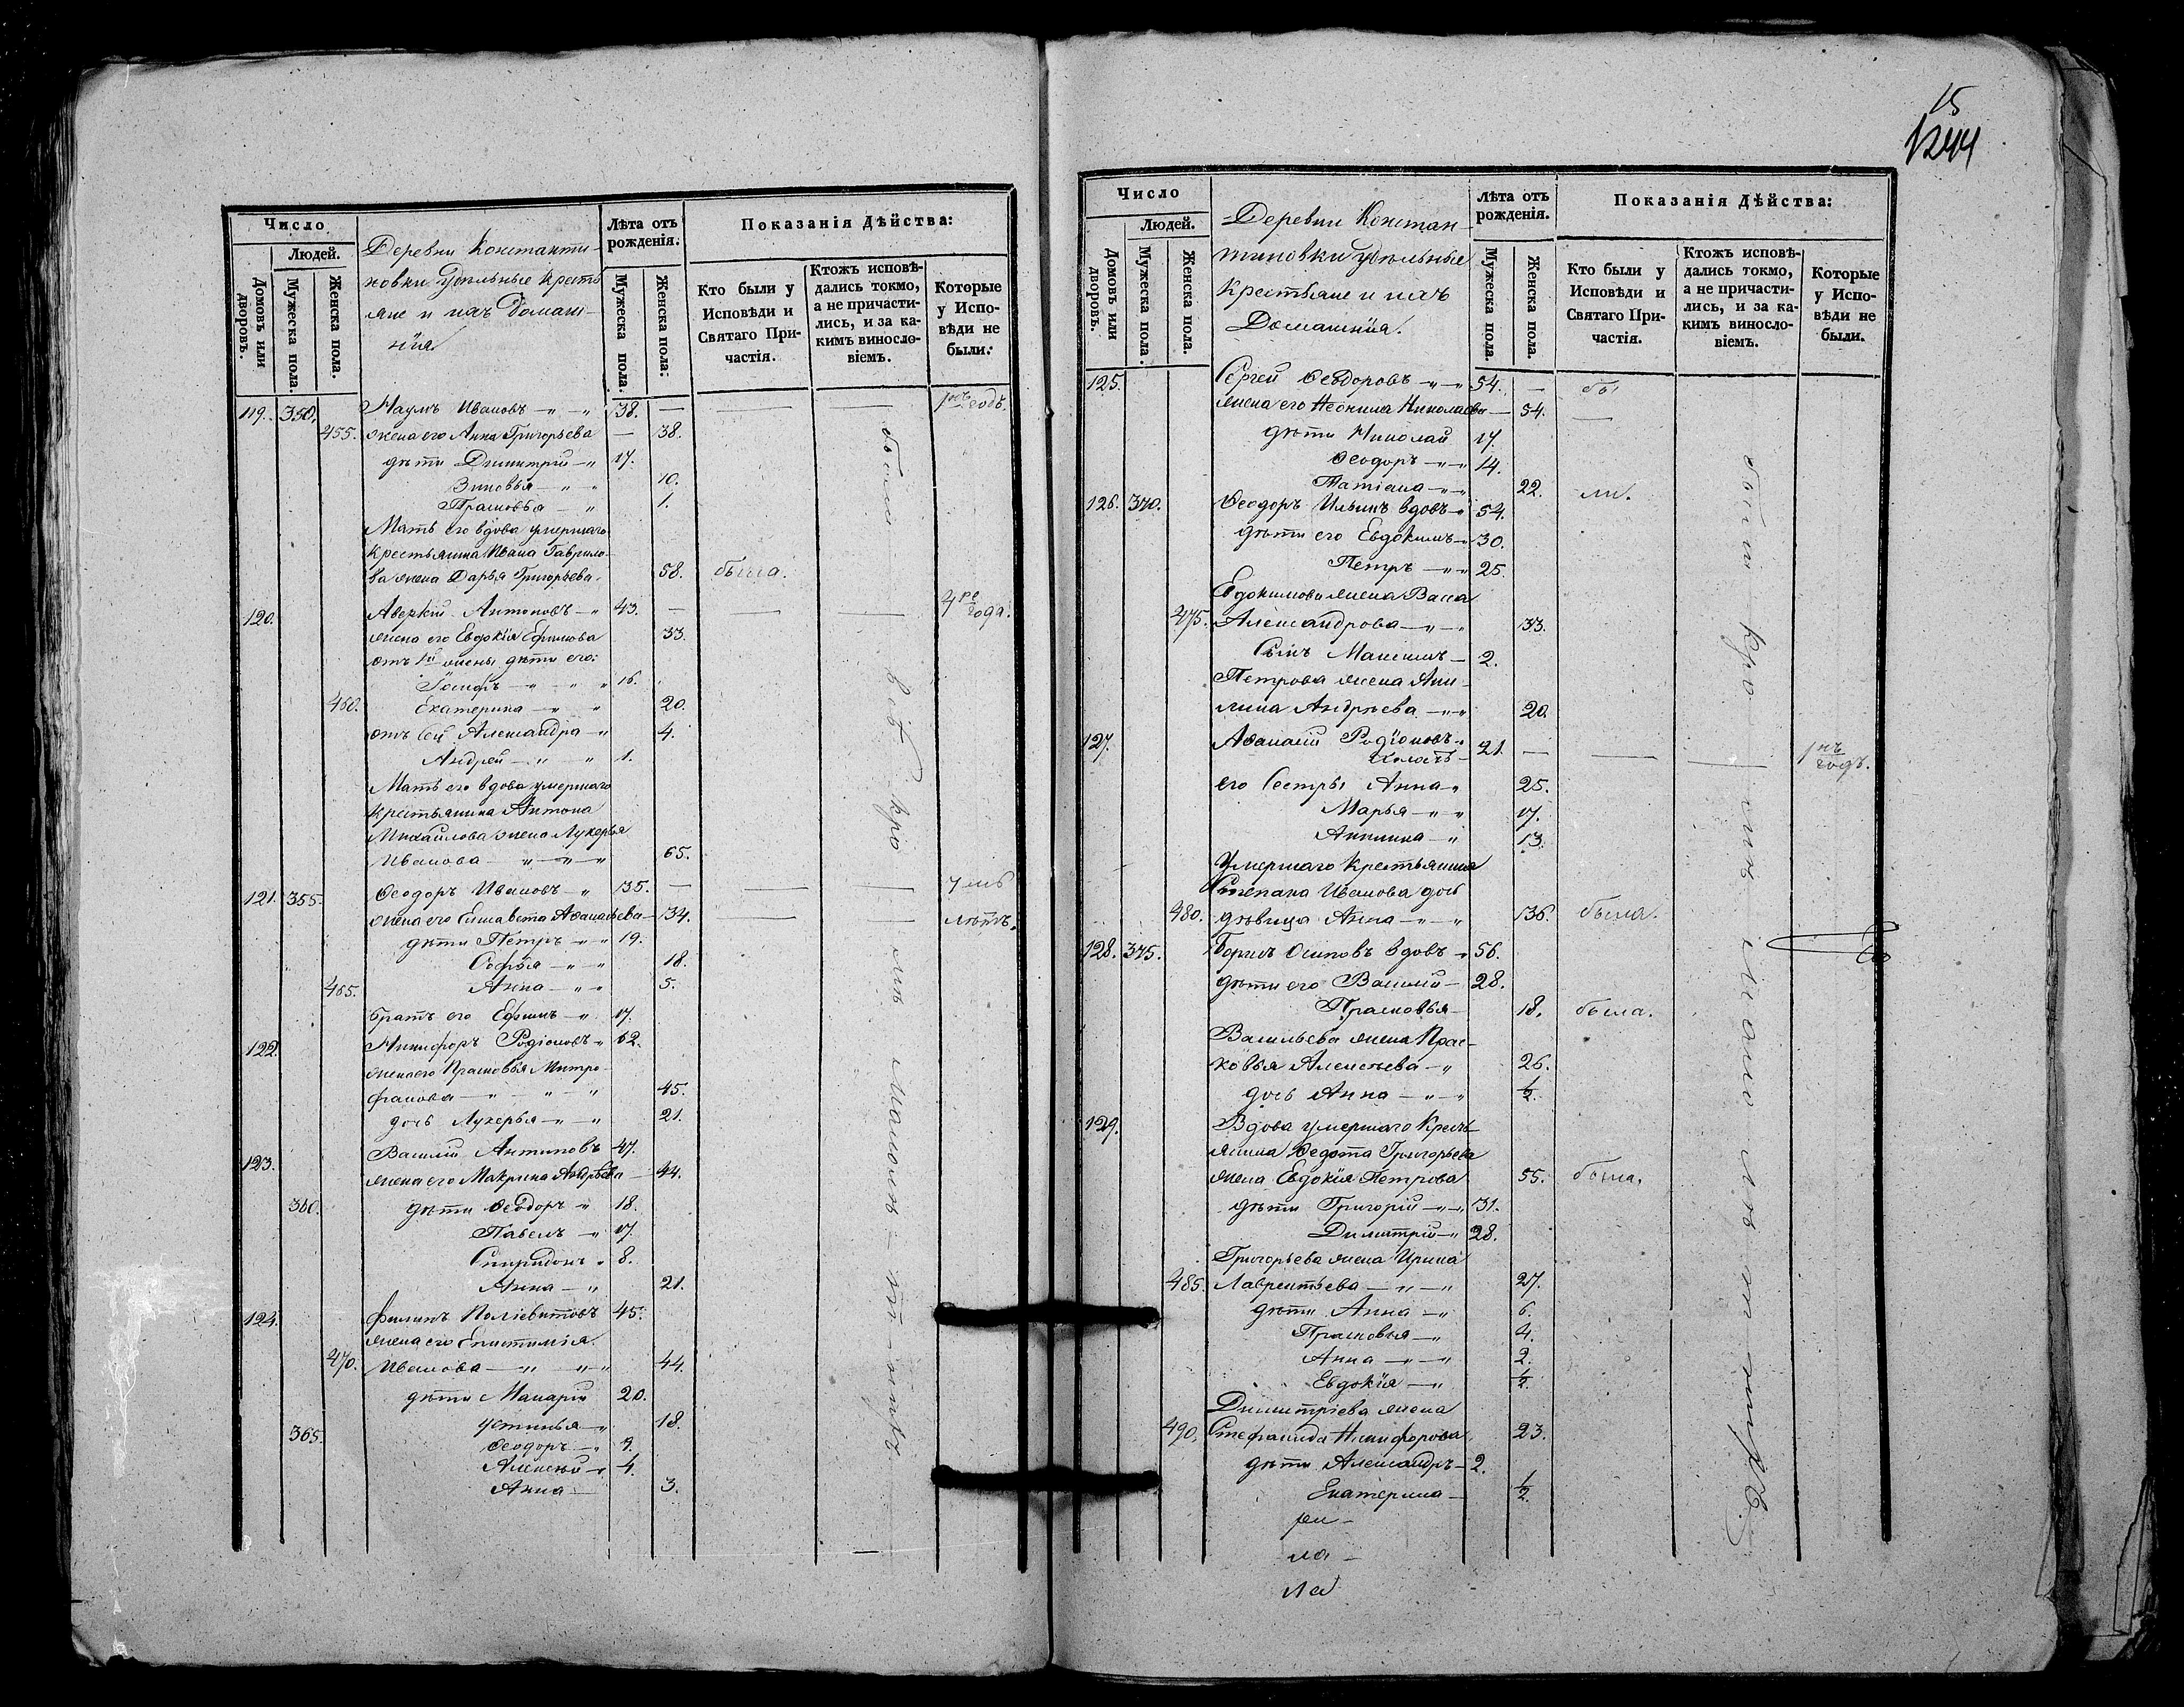 Число
Людей.
Домовъ или дворовъ.
Мужеска пола.
Женска пола.
Деревни Константи-
новки Удѣльные Кресть
яне и ихъ Домаш-
нія
Лѣта отъ рожденія.
Мужеска пола.
Женска пола.
Показанія Дѣйства:
Кто были у Исповѣди и Святаго Причастія.
Ктожъ исповѣдались токмо, а не причастились, и за какимъ винословіемъ.
Которые у Исповѣди не были.
119. 350. Наумъ Ивановъ — „ — „ 38. — — — 1нъ годъ.
455. жена его Анна Григорьева — 38.
дѣти Димитрій — „ 17.
Зиновья — „ — „ 10.
Прасковья — „ 1.
Мать его вдова умершаго
крестьянина Ивана Гаврило-
ва жена Дарья Григорьева. 58. была.
120. Аверкій Антоновъ — „ 43. — — — 4ре года.
жена его Евдокія Ефимова 33.
отъ 1й жены дѣти его:
Іосифъ — „ — „ 16.
460. Екатерина — „ — „ 20.
отъ сей Александра — „ 4.
Андрей — „ — „ 1.
Мать его вдова умершаго
крестьянина Антона
Михайлова жена Лукерья
Иванова — „ — „ — „ 65.
121. 355. Ѳеодоръ Ивановъ — „ 35. — — — 7 мь
жена его Елисавета Аѳанасьева — 34. — — лѣтъ.
дѣти Петръ — „ — „ 19.
Софья — „ — „ 18.
465. Анна — „ — „ 5.
братъ его Ефимъ — „ 17.
122. Никифоръ Родіоновъ — „ 62.
жена его Прасковья Митро-
фанова — „ — „ — „ 45.
дочь Лукерья — „ — „ 21.
123. Василій Антиповъ 47.
жена его Макрина Андрѣева — 44.
360. дѣти Ѳеодоръ „ 18.
Павелъ — „ 17.
Спиридонъ „ 8.
Анна — „ 21.
124. Филипъ Поліевктовъ 45.
жена его Епистимія
470. Иванова — „ — „ — „ 44.
дѣти Макарій 20.
Устинья — „ 18.
365. Ѳеодоръ — „ 9.
Алексѣй — „ 4.
Анна — 3.
15
1244
Число
Людей.
Домовъ или дворовъ.
Мужеска пола.
Женска пола.
Деревни Констан-
тиновки удѣльные
Крестьяне и ихъ
Домашнія.
Лѣта отъ рожденія.
Мужеска пола.
Женска пола.
Показанія Дѣйства:
Кто были у Исповѣди и Святаго Причастія.
Ктожъ исповѣдались токмо, а не причастились, и за какимъ винословіемъ.
Которые у Исповѣди не были.
125. Сергей Ѳеодоровъ — „ — „ 54. — бы
жена его Неонила Николаева — 54. —
дѣти Николай 17.
Ѳеодоръ — „ — „ 14.
Татіана — „ — „ 22. ли.
126. 370. Ѳеодоръ Ильинъ вдовъ — „ 54.
дѣти его Евдокимъ — „ 30.
Петръ — „ — „ 25.
Евдокимова жена Васса
475. Александрова — „ — „ 33.
Сынъ Максимъ — 2.
Петрова жена Аки-
лина Андрѣева — „ — „ 20.
127. Аѳанасій Родіоновъ — „
холостъ — 21. — — — 1нъ годъ.
его Сестры Анна „ 25.
Марья — „ — „ 17.
Аннина — „ 13.
Умершаго крестьянина
Степана Иванова дочь
480. дѣвица Анна — „ — „ 36. была.
128. 375. Борисъ Осиповъ вдовъ — „ 56.
дѣти его Василій — 28.
Прасковья — 18. была.
Васильева жена Прас-
ковья Алексѣева — „ 26.
дочь Анна — „ — „ 1/2.
129. Вдова умершаго Кресть-
янина Ѳедота Григорьева
жена Евдокія Петрова 55. была.
дѣти Григорій — „ — „ 31.
Димитрій — „ 28.
Григорьева жена Ирина
485. Лаврентьева — „ — „ 27.
дѣти Анна — „ 6.
Прасковья — „ 4.
Анна — „ — „ 2.
Евдокія — „ 1/2.
Димитріева жена
490. Стефанида Никифорова 23.
дѣти Александръ — 2.
Екатерина — 1/2.